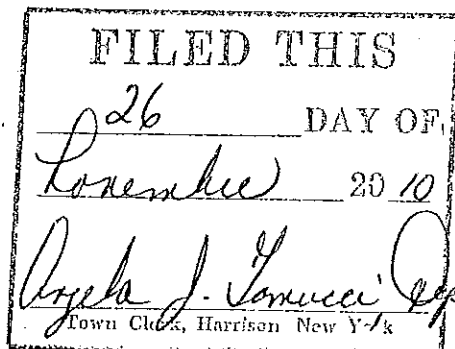 FILED THIS
26 DAY OF
November 20 10
Angela J.
Town Clerk, Harrison New York